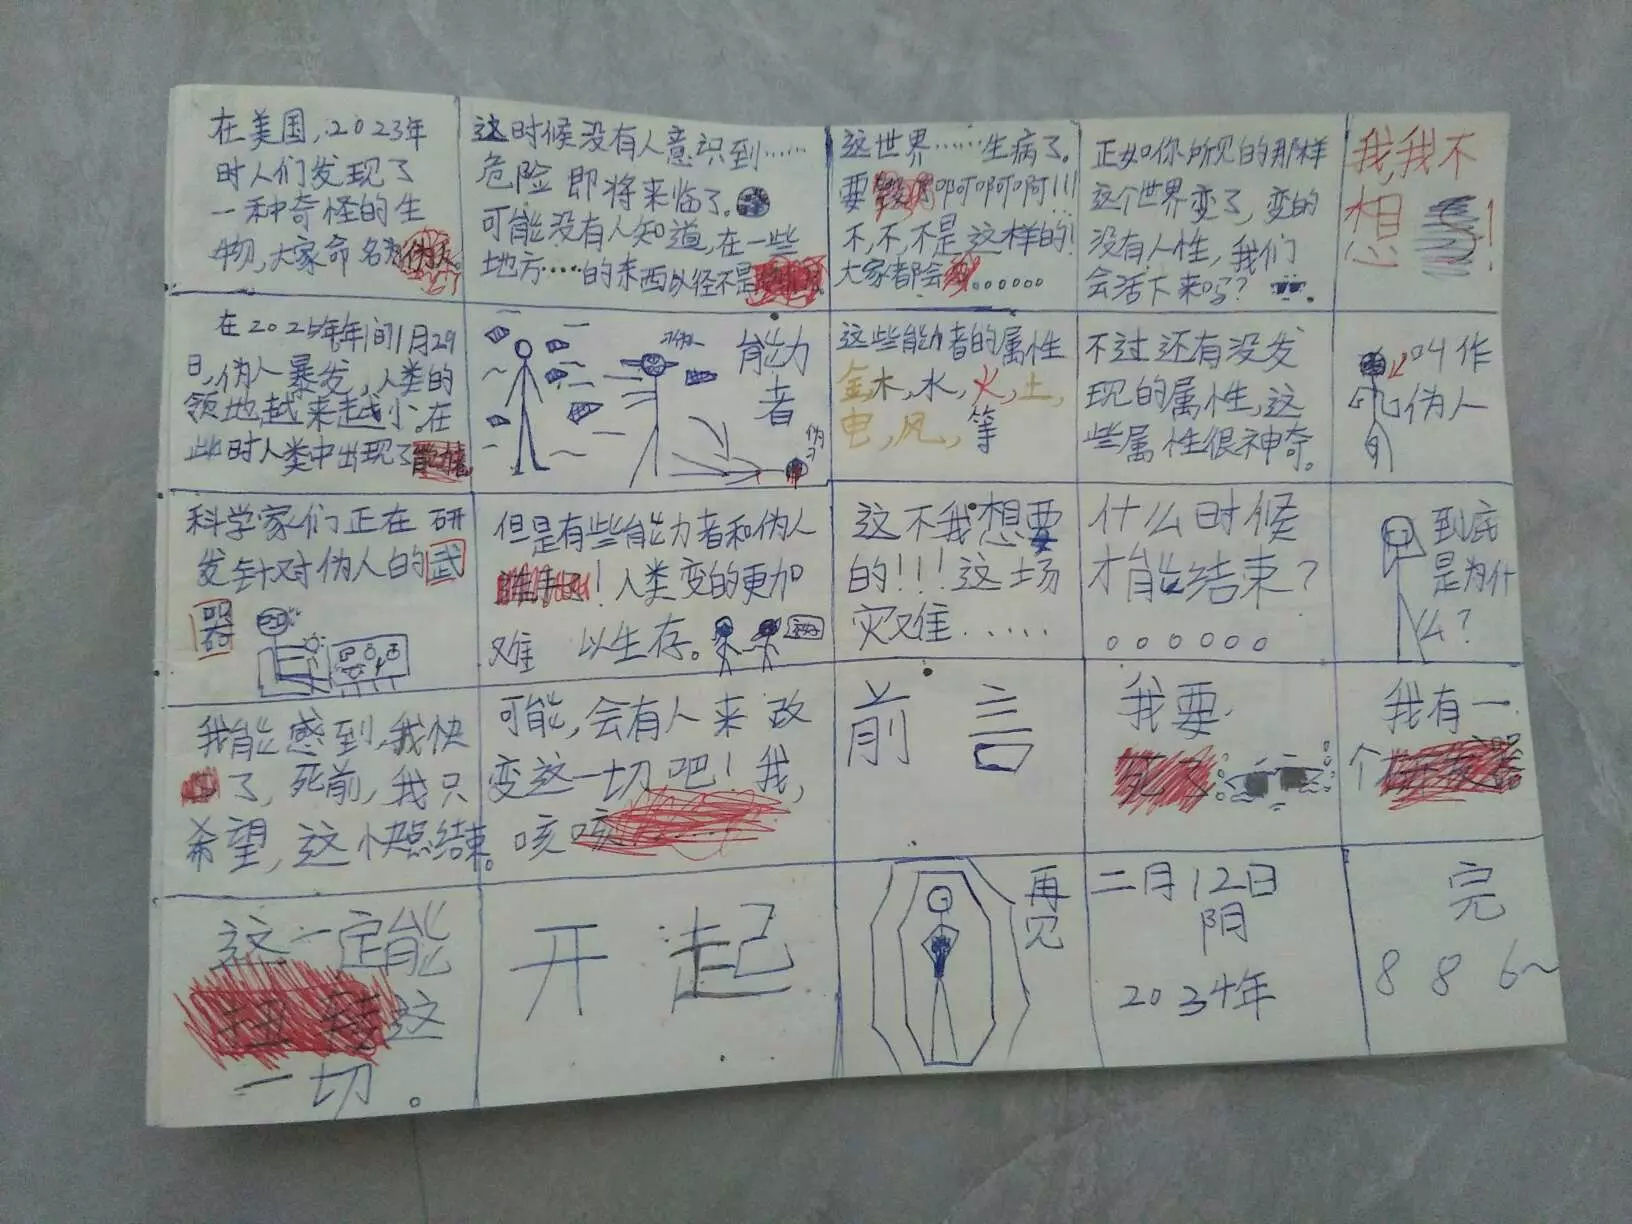 在美国,2023年
时人们发现了
一种奇怪的生
物,大家命名为伪人
这时候没有人意识到……
危险即将来临了。
可能没有人知道,在一些
地方……的东西以经不是
这世界……生病了。
要 啊啊啊啊!!!
不,不,不是这样的!
大家都会……
正如你所见的那样
这个世界变了,变的
没有人性,我们
会活下来吗?
我,我不
想 !
在2025年年间1月29
日,伪人暴发,人类的
领地越来越小。在
此时人类中出现了
能力
者
这些能力者的属性
金木,水,火,土,
电,风,等
不过还有没发
现的属性,这
些属性很神奇。
叫作
伪人
科学家们正在研
发针对伪人的武
器
但是有些能力者和伪人
联手了!人类变的更加
难以生存。
这不我想要
的!!!这场
灾难……
什么时候
才能结束?
。。。。。。
到底
是为什
么?
我能感到,我快
了,死前,我只
希望,这快点结束。
可能,会有人来改
变这一切吧!我,
咳咳
前言
我要
死了
我有一
个
这一定能
扭转这
一切。
开起
再见
二月12日
阴
2034年
完
886~